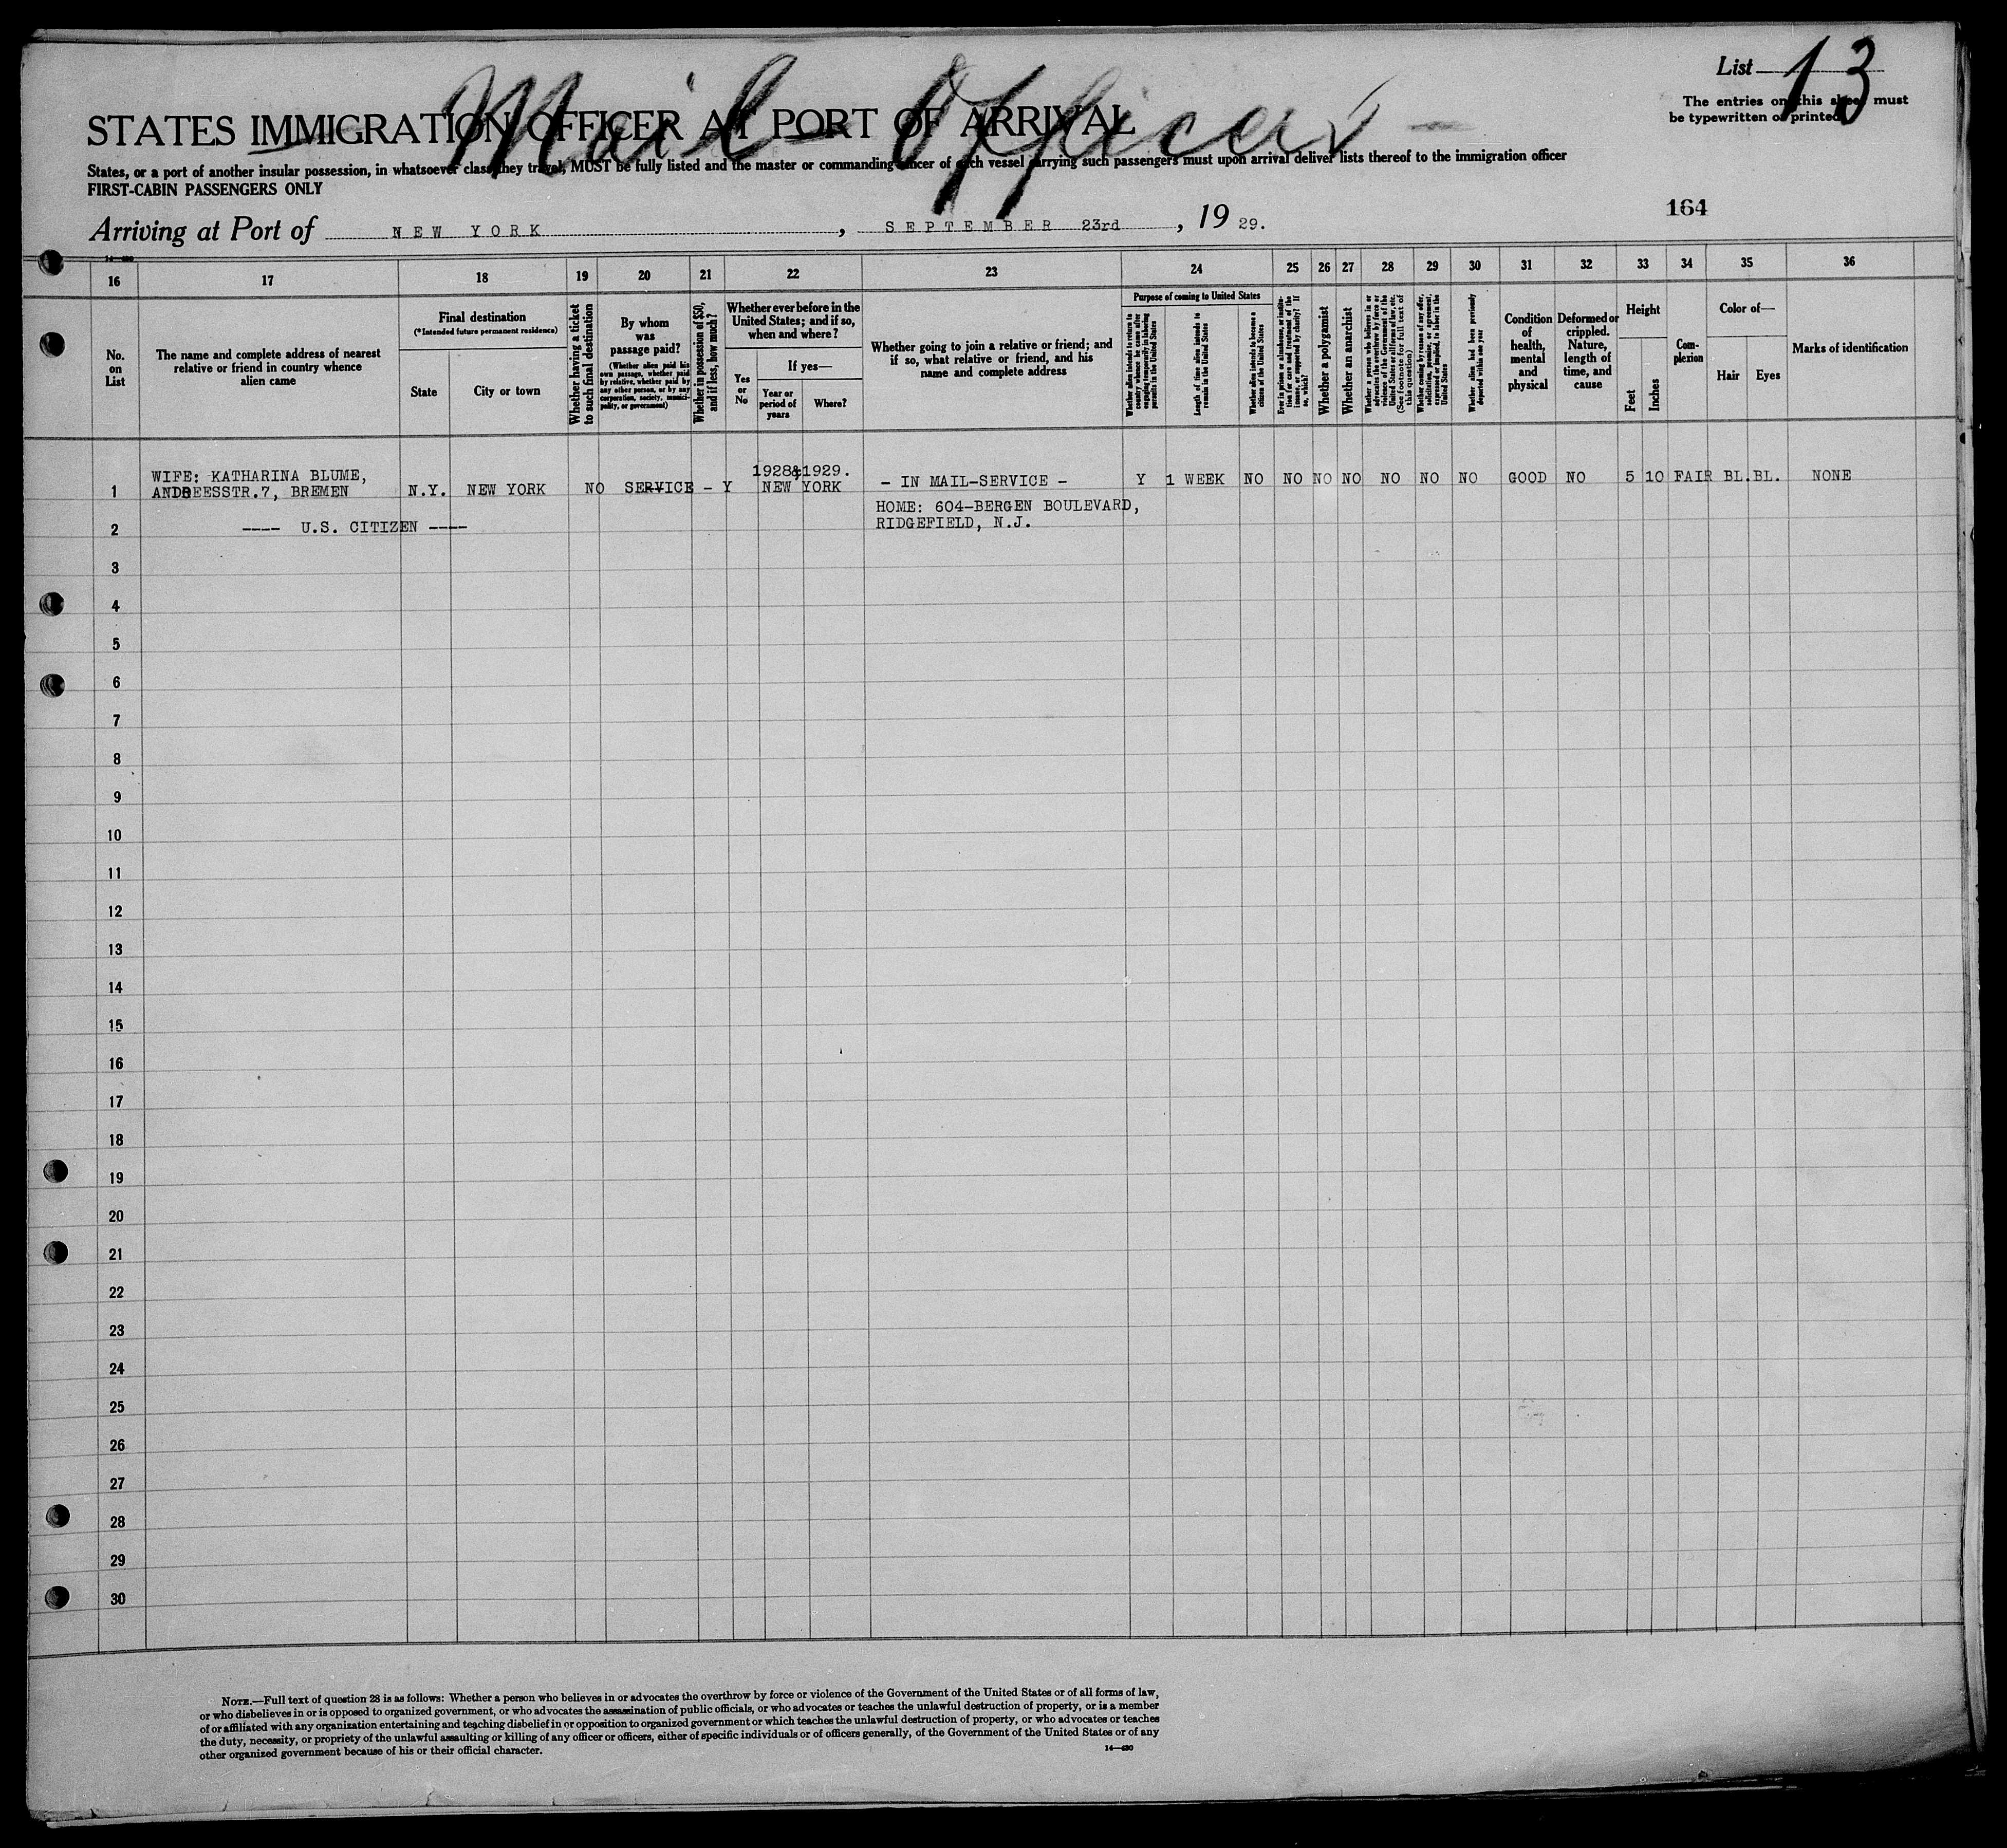 Mail Officers
List 13
The entries on this sheet must
be typewritten or printed
STATES IMMIGRATION OFFICER AT PORT OF ARRIVAL
States, or a port of another insular possession, in whatsoever class they travel, MUST be fully listed and the master or commanding officer of each vessel carrying such passengers must upon arrival deliver lists thereof to the immigration officer
FIRST-CABIN PASSENGERS ONLY
164
Arriving at Port of NEW YORK, SEPTEMBER 23rd, 19 29.
16 17 18 19 20 21 22 23 24 25 26 27 28 29 30 31 32 33 34 35 36
No.
on
List
The name and complete address of nearest
relative or friend in country whence
alien came
Final destination
(*Intended future permanent residence)
State
City or town
Whether having a ticket
to such final destination
By whom
was
passage paid?
(Whether alien paid his
own passage, whether paid
by relative, whether paid by
any other person, or by any
corporation, society, munici-
pality, or government)
Whether in possession of $50,
and if less, how much?
Whether ever before in the
United States; and if so,
when and where?
Yes
or
No
If yes—
Year or
period of
years
Where?
Whether going to join a relative or friend; and
if so, what relative or friend, and his
name and complete address
Purpose of coming to United States
Whether alien intends to return to
country whence he came after
engaging temporarily in laboring
pursuits in the United States
Length of time alien intends to
remain in the United States
Whether alien intends to become a
citizen of the United States
Ever in prison or almshouse, or institu-
tion for care and treatment of the
insane, or supported by charity? If
so, which?
Whether a polygamist
Whether an anarchist
Whether a person who believes in or
advocates the overthrow by force or
violence of the Government of the
United States or all forms of law, etc.
(See footnote for full text of
this question)
Whether coming by reason of any offer,
solicitation, promise, or agreement,
expressed or implied, to labor in the
United States
Whether alien had been previously
deported within one year
Condition
of
health,
mental
and
physical
Deformed or
crippled.
Nature,
length of
time, and
cause
Height
Feet
Inches
Com-
plexion
Color of—
Hair
Eyes
Marks of identification
1928&1929.
WIFE: KATHARINA BLUME,
1 ANDREESSTR.7, BREMEN N.Y. NEW YORK NO SERVICE - Y NEW YORK - IN MAIL-SERVICE - Y 1 WEEK NO NO NO NO NO NO NO GOOD NO 5 10 FAIR BL. BL. NONE
HOME: 604-BERGEN BOULEVARD,
2 ---- U.S. CITIZEN ---- RIDGEFIELD, N.J.
3
4
5
6
7
8
9
10
11
12
13
14
15
16
17
18
19
20
21
22
23
24
25
26
27
28
29
30
NOTE.—Full text of question 28 is as follows: Whether a person who believes in or advocates the overthrow by force or violence of the Government of the United States or of all forms of law,
or who disbelieves in or is opposed to organized government, or who advocates the assassination of public officials, or who advocates or teaches the unlawful destruction of property, or is a member
of or affiliated with any organization entertaining and teaching disbelief in or opposition to organized government or which teaches the unlawful destruction of property, or who advocates or teaches
the duty, necessity, or propriety of the unlawful assaulting or killing of any officer or officers, either of specific individuals or of officers generally, of the Government of the United States or of any
other organized government because of his or their official character.
14—430